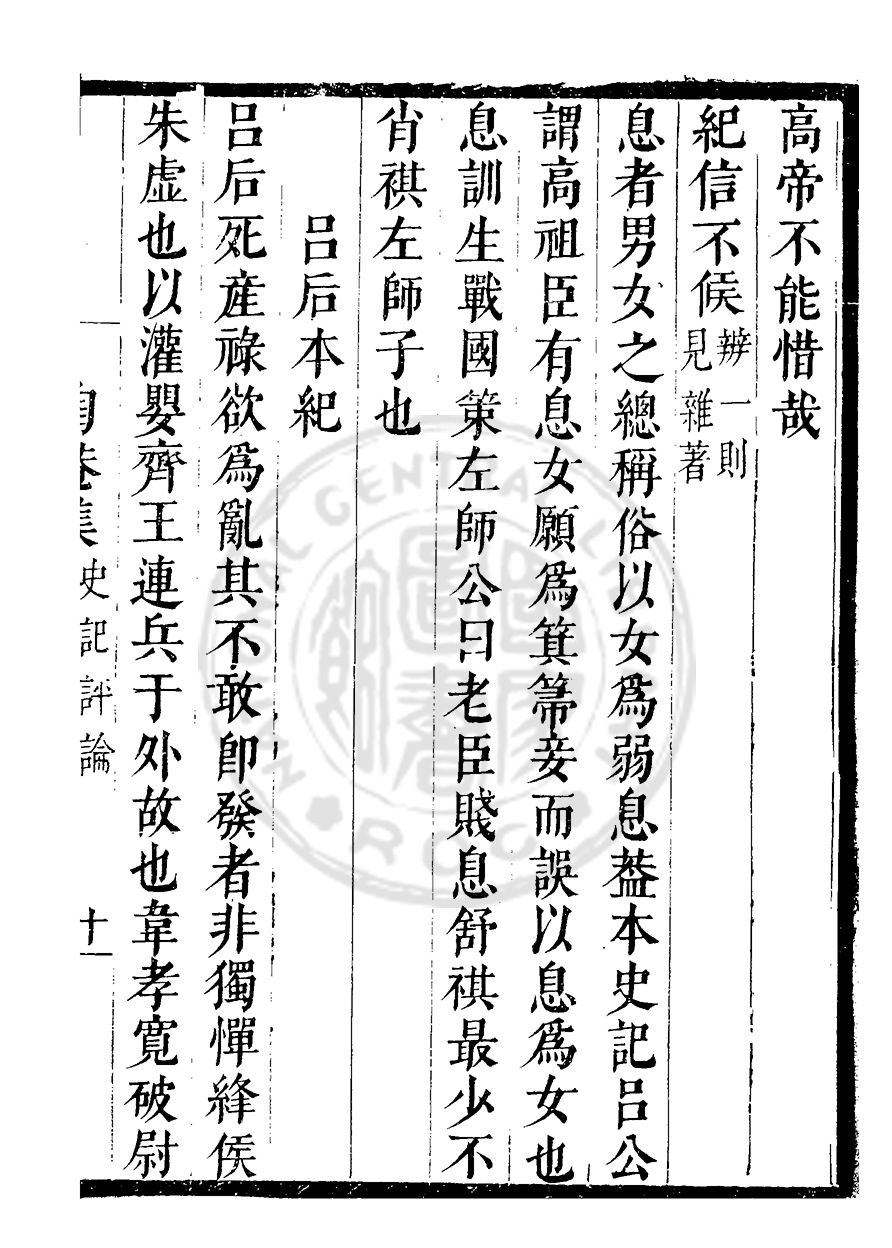 高帝不能惜哉
紀信不侯辨一則見雜著
息者男女之總稱俗以女爲弱息葢本史記呂公
謂高祖臣有息女願爲箕箒妾而誤以息爲女也
息訓生戰國策左師公曰老臣賤息舒祺最少不
肖祺左師子也
呂后本紀
呂后死產祿欲爲亂其不敢卽發者非獨憚絳侯
朱虛也以灌嬰齊王連兵于外故也韋孝寬破尉
陶菴集 史記評論 十一
CENTRAL LI